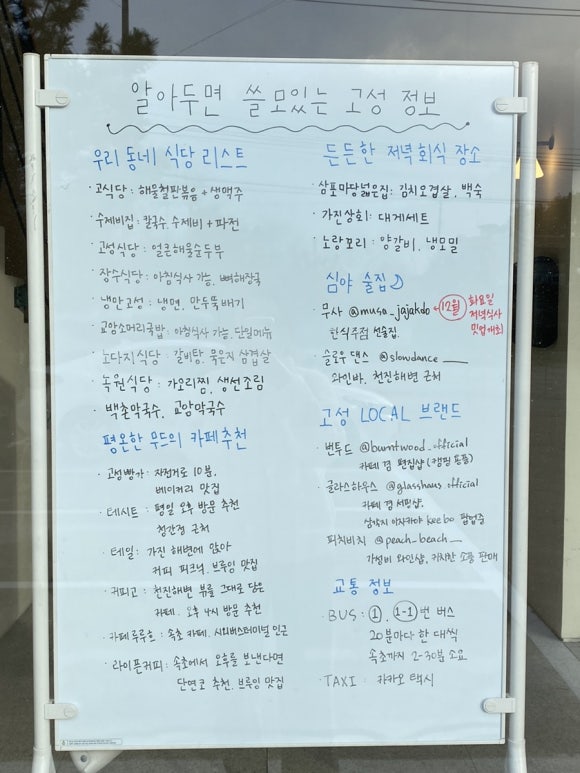 알아두면 쓸모있는 고성 정보
우리 동네 식당 리스트
· 고식당 : 해물철판볶음 + 생맥주
· 수제비집 : 칼국수, 수제비 + 파전
· 고성식당 : 얼큰해물순두부
· 장수식당 : 아침식사 가능, 뼈해장국
· 냉안고성 : 냉면, 만두뚝배기
· 교암소머리국밥 : 아침식사 가능, 단일메뉴
· 노다지식당 : 갈비탕, 묵은지 삼겹살
· 녹원식당 : 가오리찜, 생선조림
· 백촌막국수, 교암막국수
평온한 무드의 카페추천
· 고성빵가 : 자전거로 10분,
베이커리 맛집
· 테시트 : 평일 오후 방문 추천
청간정 근처
· 테일 : 가진 해변에 앉아
커피 피크닉, 브루잉 맛집
· 커피고 : 천진해변 뷰를 그대로 담은
카페. 오후 4시 방문 추천
· 카페루루흐 : 속초 카페, 시외버스터미널 인근
· 라이픈커피 : 속초에서 오후를 보낸다면
단연코 추천, 브루잉 맛집
든든한 저녁회식 장소
· 삼포마당넓은집 : 김치오겹살, 백숙
· 가진상회 : 대게세트
· 노랑꼬리 : 양갈비, 냉모밀
심야 술집
· 무사 @musa_jajakdo
12월
화요일
저녁식사
팝업개최
한식주점 선술집
· 슬로우 댄스 @slowdance___
와인바, 천진해변 근처
고성 LOCAL 브랜드
· 번투드 @burntwood_official
카페 겸 편집샵 (캠핑 용품)
· 글라스하우스 @glasshaus.official
카페 겸 서핑샵,
이자카야 keebo 팝업중
피치비치 @peach_beach__
가성비 와인샵, 키치한 소품 판매
교통 정보
· BUS : 1, 1-1번 버스
20분마다 한 대씩
속초까지 2-30분 소요
· TAXI : 카카오 택시